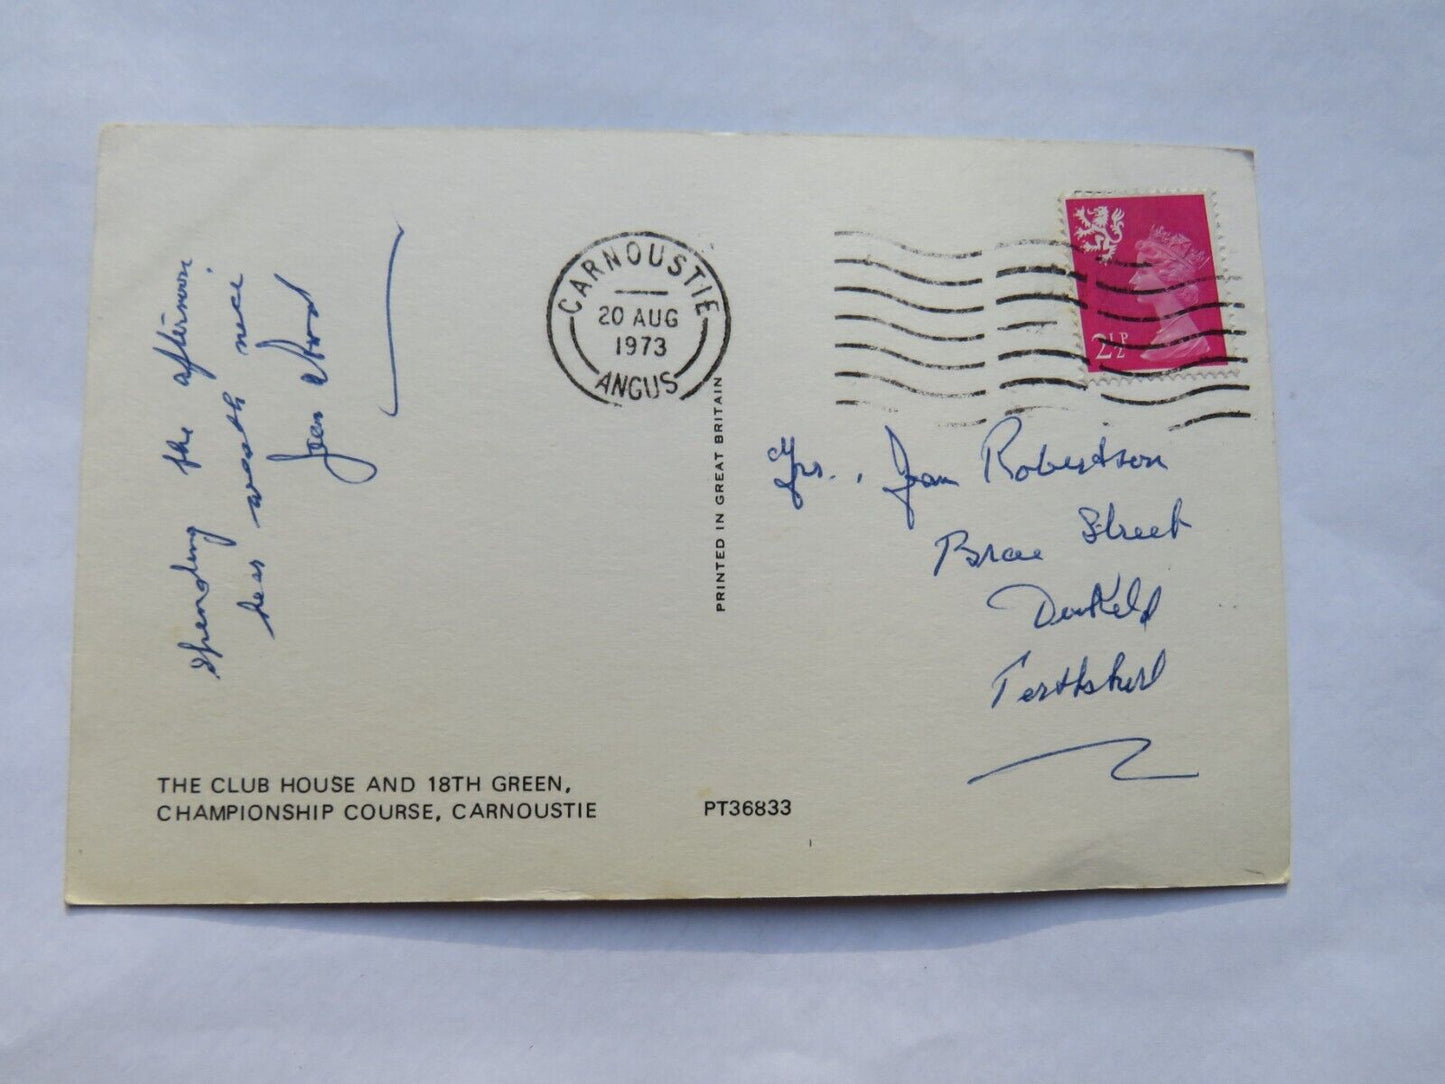 Spending the afternoon
here weath nice
Jean Wood
CARNOUSTIE
20 AUG
1973
ANGUS
2½P
PRINTED IN GREAT BRITAIN
Mrs. Jean Robertson
Brae Street
Dunkeld
Perthshire
THE CLUB HOUSE AND 18TH GREEN,
CHAMPIONSHIP COURSE, CARNOUSTIE
PT36833